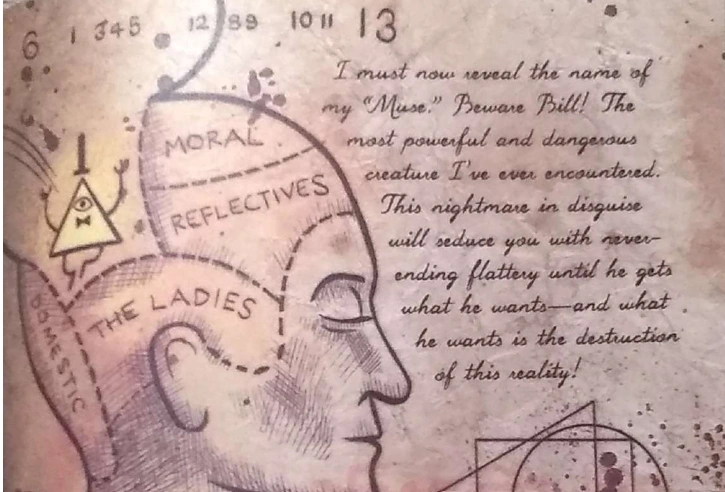 6 1 345 12 89 10 11 13
I must now reveal the name of
my “Muse.” Beware Bill! The
most powerful and dangerous
creature I've ever encountered.
This nightmare in disguise
will seduce you with never-
ending flattery until he gets
what he wants—and what
he wants is the destruction
of this reality!
MORAL
REFLECTIVES
THE LADIES
DOMESTIC